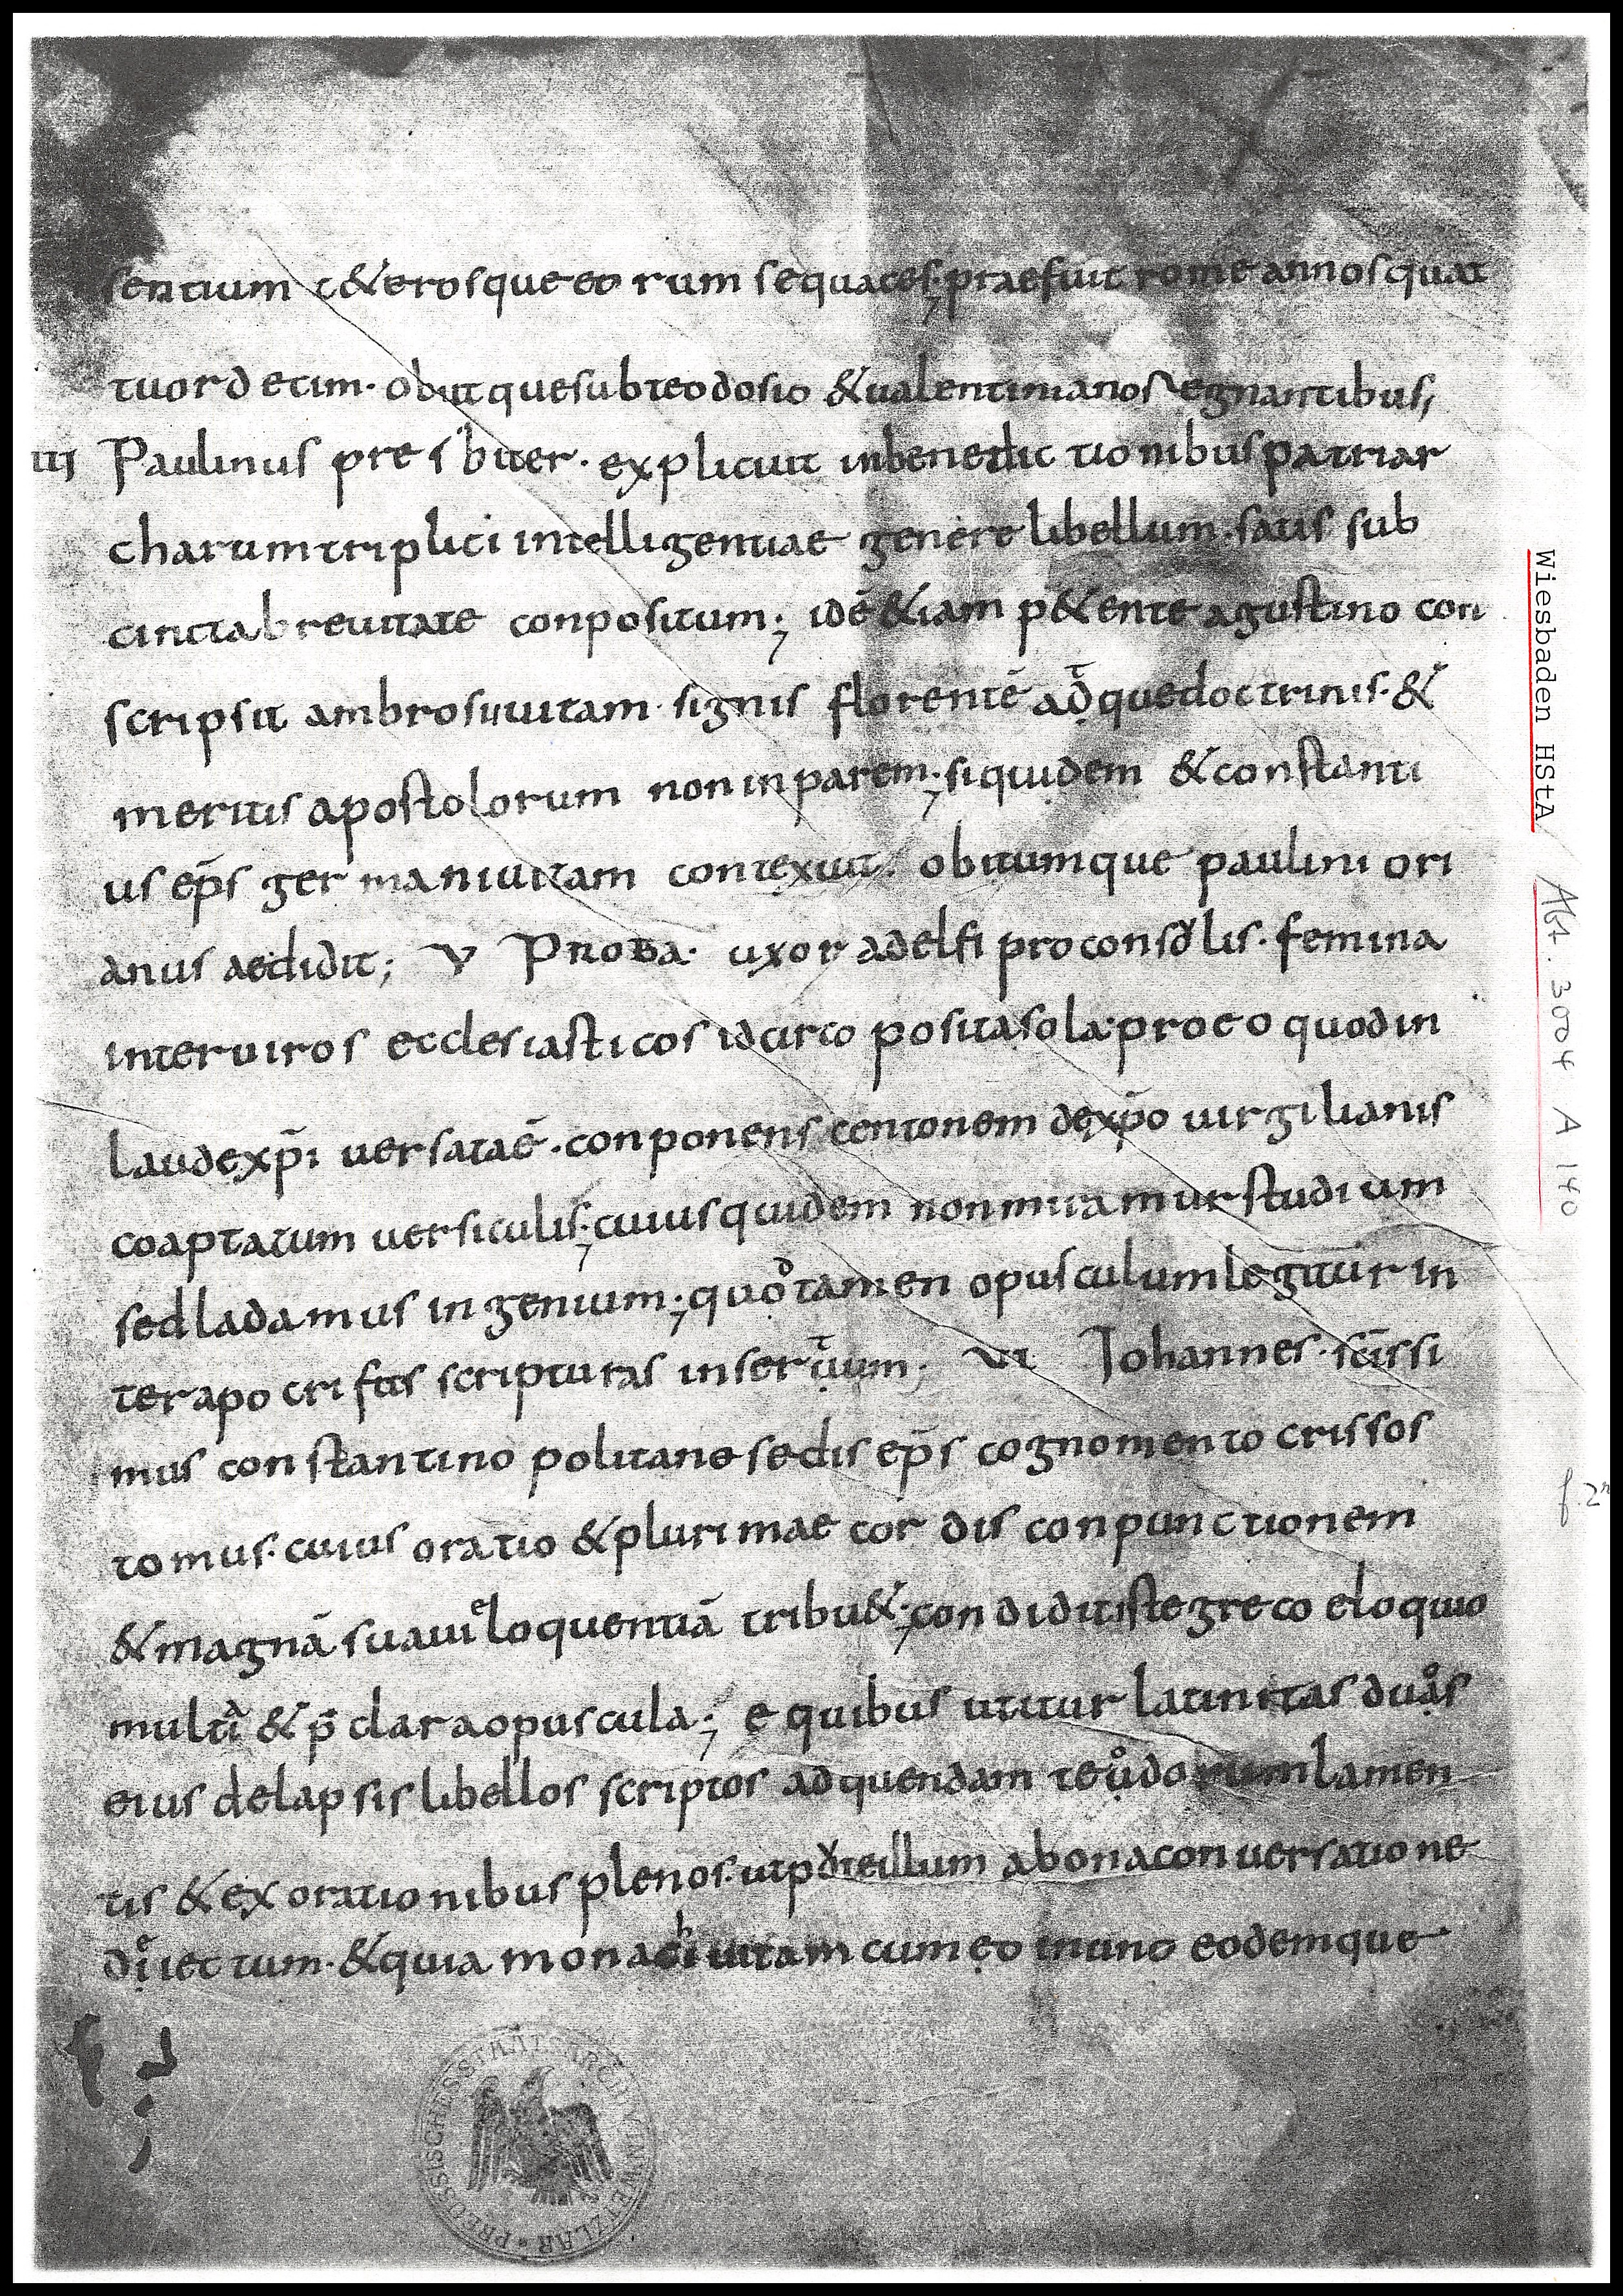 sentium c&erosque eorum sequaces; praefuit rome annos quat
tuordecim. obiit que sub teodosio & ualentiniano regnantibus;
iiij Paulinus presbiter. explicuit in benedictionibus patriar
charum triplici intelligentiae genere libellum. satis sub
cincta breuitate conpositum; idē &iam p&ente agustino con
scripsit ambrosii uitam. signis florentē adque doctrinis. &
meritis apostolorum non inparem; siquidem & constanti
us ep̄s germani uitam contexuit. obitumque paulini ori
anus aedidit; V Proba. uxor adelfi proconsolis. femina
inter uiros ecclesiasticos idcirco posita sola. pro eo quod in
laude xp̄i uersata ē. conponens centonem de xp̄o uirgilianis
coaptatum uersiculis; cuius quidem non miramur studium
sed ladamus ingenium; quod tamen opusculum legitur in
ter apocrifas scripturas insertum; VI Johannes. sc̄issi
mus constantinopolitane sedis ep̄s cognomento crissos
tomus. cuius oratio & plurimae cordis conpunctionem
& magnā suauieloquentiā tribu&; condidit iste greco eloquio
multa & p̄clara opuscula; e quibus utitur latinitas duos
eius de lapsis libellos scriptos ad quendam teudorum lamen
tis & exorationibus plenos. ut p illum a bona conuersatione
deiectum. & quia monachi uitam cum eo in uno eodemque
Wiesbaden HStA Abt. 3004 A 140
f. 2r
PREUSSISCHES STAATSARCHIV IN WETZLAR